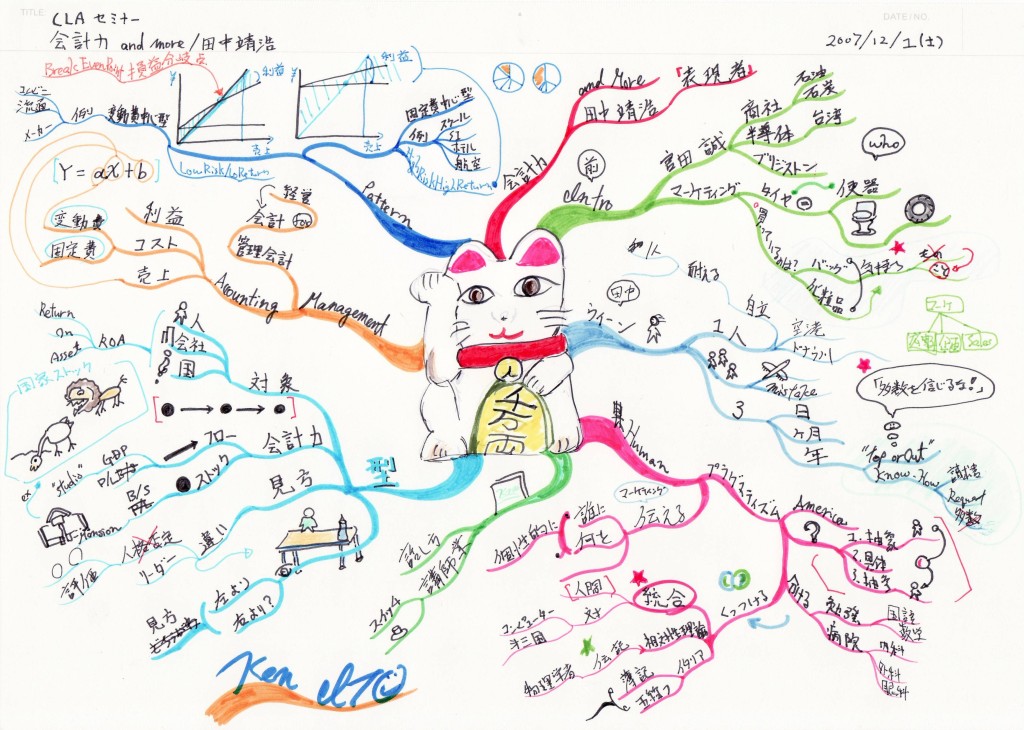 TITLE
DATE/NO.
CLA セミナー
会計力 and more / 田中靖浩
2007/12/1(土)
Break Even Point 損益分岐点
利益
売上
変動費中心型
例
流通
メーカー
Low Risk/Low Return
利益
売上
固定費中心型
例
スクール
ホテル
航空
High Risk High Return
Pattern
会計力
and More
田中靖浩
「表現者」
Intro
前
宮田 誠
商社
石油
石炭
半導体
台湾
ブリジストン
マーケティング
タイヤ
便器
who
買っているのは?
バッグ
化粧品
気持ち
もの
こと
Sales
[Y = aX + b]
変動費
固定費
利益
コスト
売上
Accounting
Management
経営
会計
for
管理会計
田中
ウィーン
1人
自立
耐える
空港
ドナウ川
mistake
3
日
ヶ月
年
「多数を信じるな!」
"up or Out"
Know-How
請求書
Request
多数
型
対象
人
会社
国
ROA
Return
on
Asset
国家ストック
会計力
フロー
GDP
P/L
ストック
B/S
"studio"
or
Mansion
見方
違い
人格否定
リーダー
評価
左より
右より?
見方
講師業
話し方
スケッチ
Human
プラグマティズム
マーケティング
伝える
誰に
何を
個性的に
America
1.抽象
2.具体
3.抽象
分ける
勉強
国語
数学
病院
内科
外科
眼科
くっつける
総合
[人間]
対
コンピューター
第三国
相対性理論
伝記
物理学者
イタリア
簿記
千両
Ken ITO